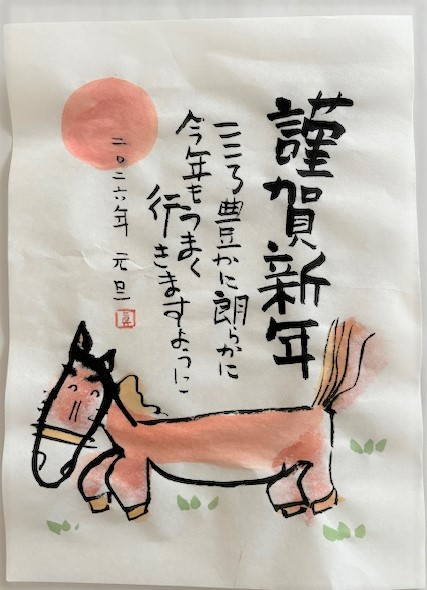 謹賀新年
こころ豊かに朗らかに
今年もうまく
行きますように
二〇二六年 元旦